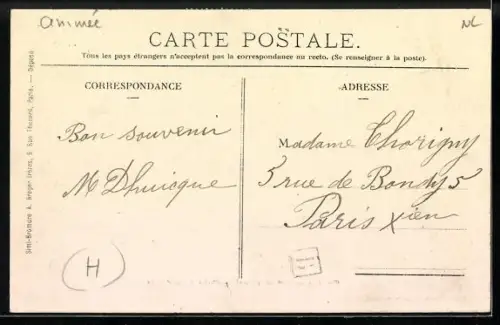 animée
NL
CARTE POSTALE.
Tous les pays étrangers n'acceptent pas la correspondance au recto. (Se renseigner à la poste).
CORRESPONDANCE
ADRESSE
Bon souvenir
M Dhuicque
Madame Thorigny
5 rue de Bondy 5
Paris xien
Simi-Bromure A. Breger frères, 9 Rue Thénard, Paris. — Déposé
H